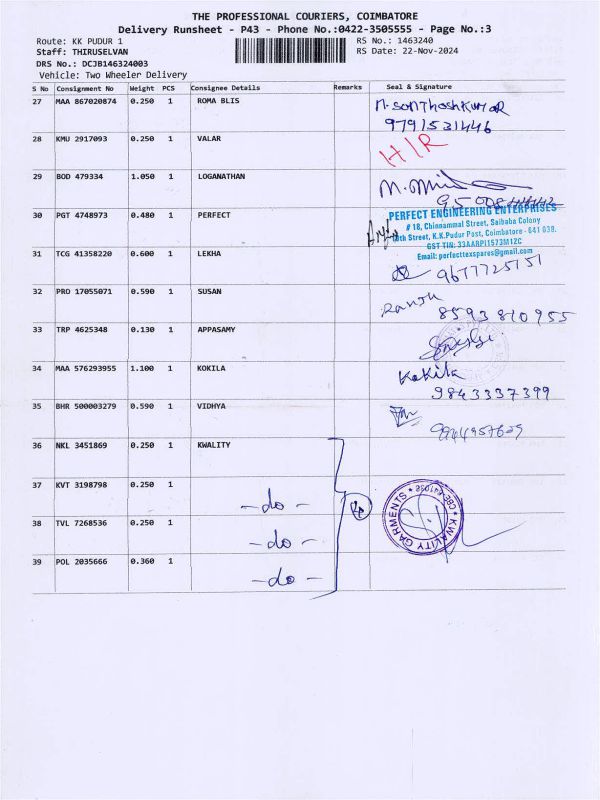 THE PROFESSIONAL COURIERS, COIMBATORE
Delivery Runsheet - P43 - Phone No.:0422-3505555 - Page No.:3
Route: KK PUDUR 1 RS No.: 1463240
Staff: THIRUSELVAN RS Date: 22-Nov-2024
DRS No.: DCJB146324003
Vehicle: Two Wheeler Delivery
S No Consignment No Weight PCS Consignee Details Remarks Seal & Signature
27 MAA 867020874 0.250 1 ROMA BLIS M.SONTHOSHKUMAR
9791531446
28 KMU 2917093 0.250 1 VALAR H/R
29 BOD 479334 1.050 1 LOGANATHAN
30 PGT 4748973 0.480 1 PERFECT PERFECT ENGINEERING ENTERPRISES
# 18, Chinnammal Street, Saibaba Colony
Street, K.K.Pudur Post, Coimbatore - 641 038.
GST TIN: 33AARPI1573M1ZC
Email: perfecttexspares@gmail.com
31 TCG 41358220 0.600 1 LEKHA 9677725751
32 PRO 17055071 0.590 1 SUSAN
8593810955
33 TRP 4625348 0.130 1 APPASAMY
34 MAA 576293955 1.100 1 KOKILA Kokila
9843337399
35 BHR 500003279 0.590 1 VIDHYA
36 NKL 3451869 0.250 1 KWALITY
37 KVT 3198798 0.250 1 - do - KWALITY GARMENTS
38 TVL 7268536 0.250 1 - do -
39 POL 2035666 0.360 1 - do -